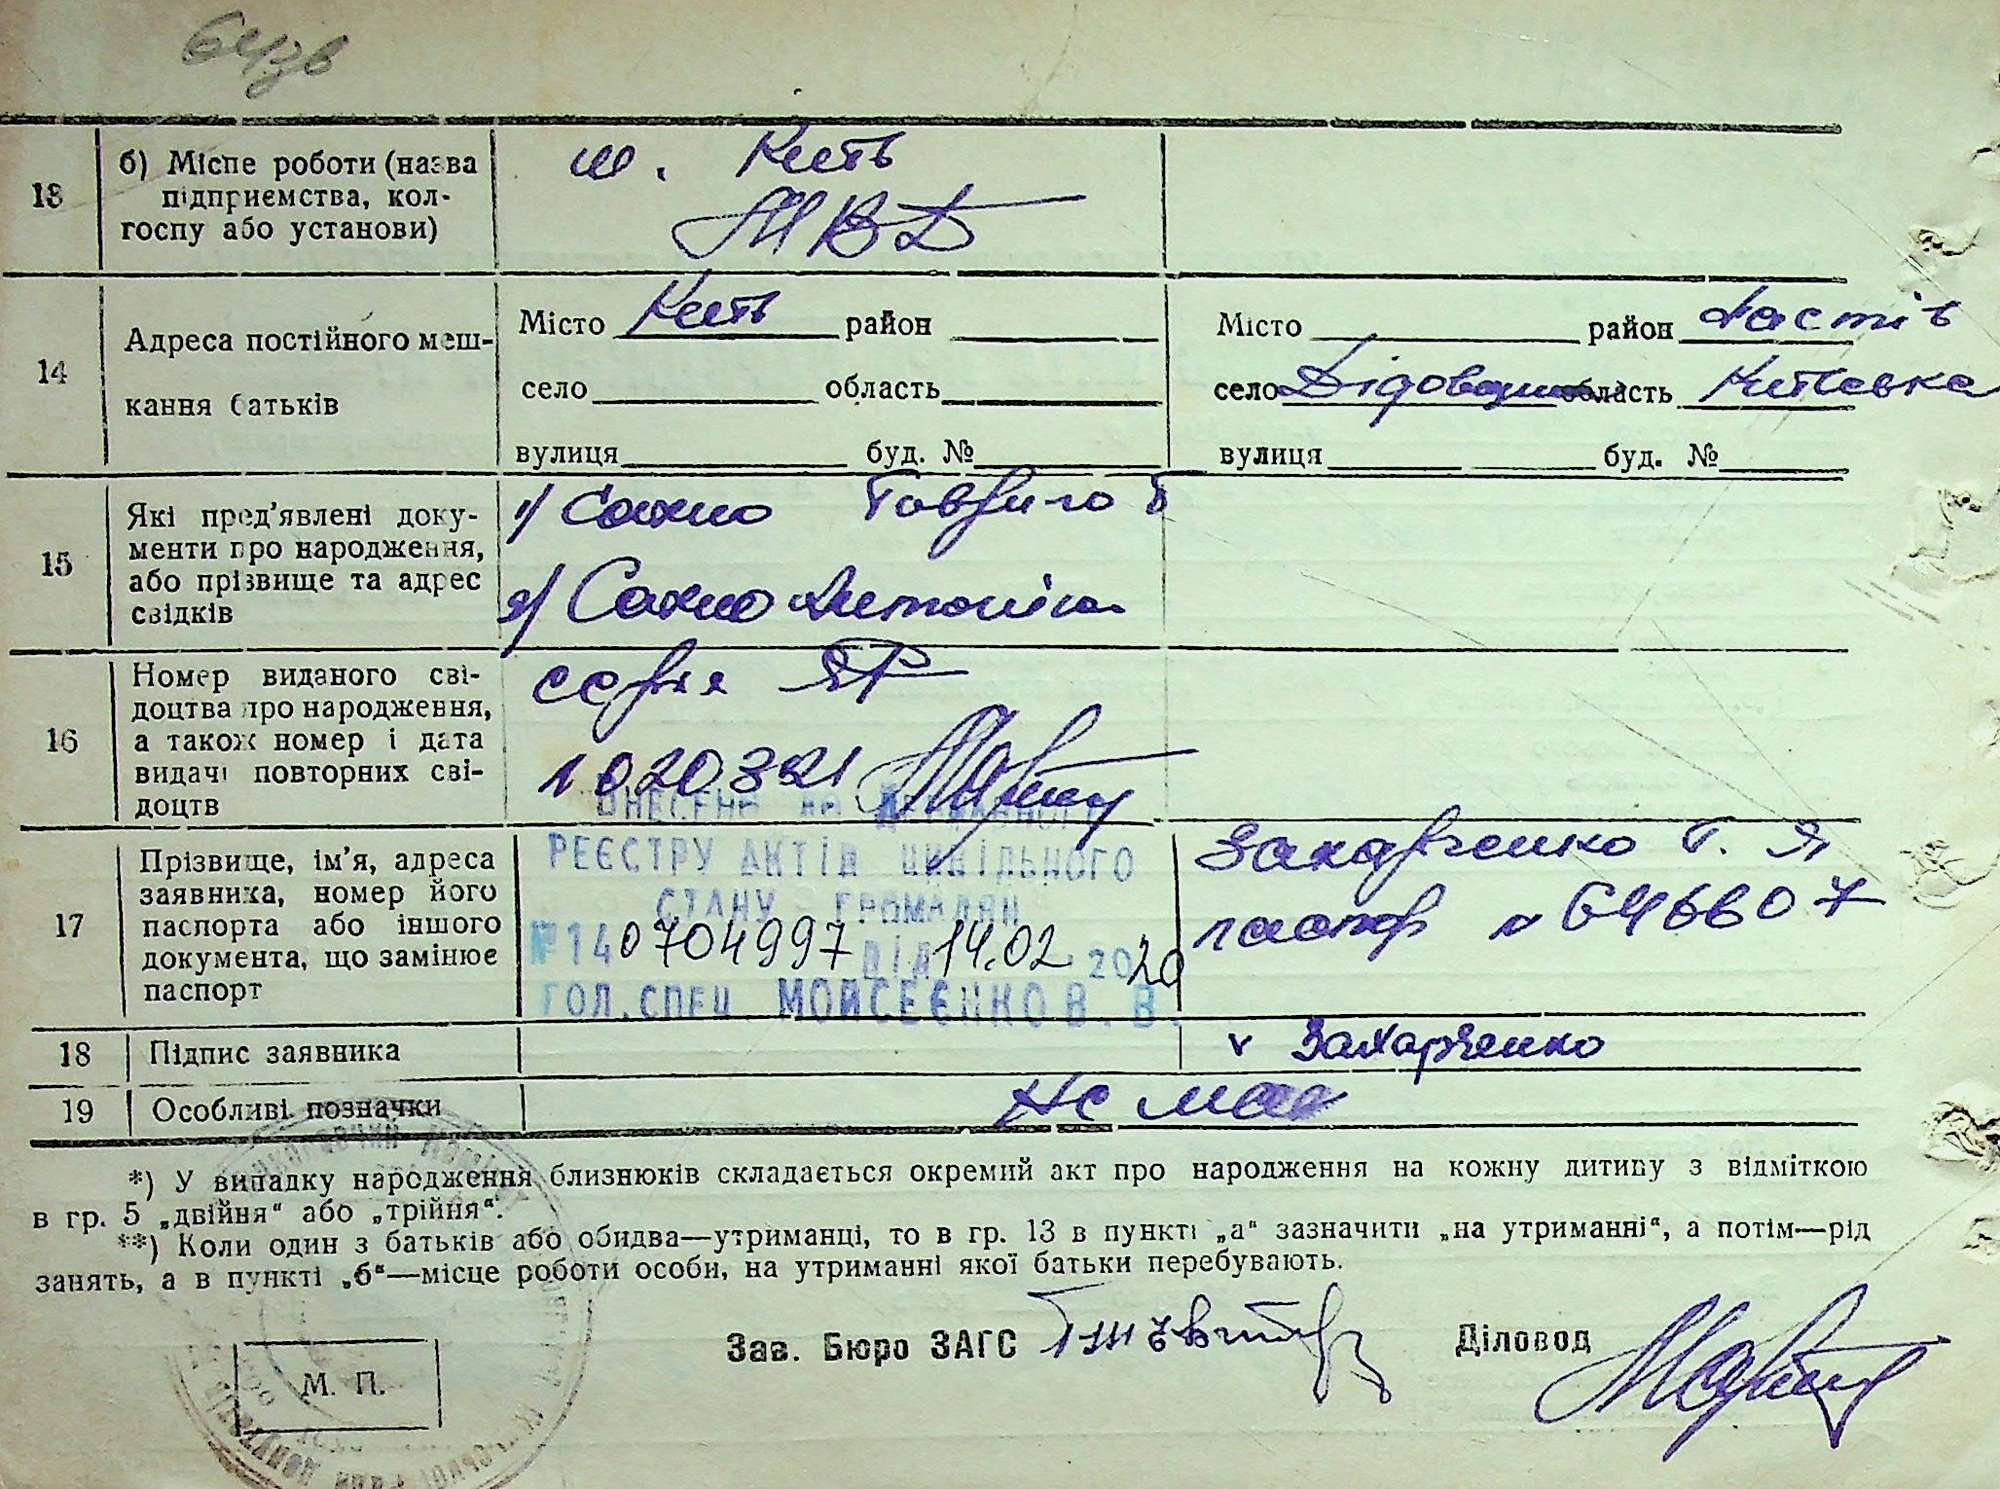 13
б) Місце роботи (назва
підприємства, кол-
госпу або установи)
м. Київ
МВД
14
Адреса постійного меш-
кання батьків
Місто Київ район
село область
вулиця буд. №
Місто район Фастів
село область Київська
вулиця буд. №
15
Які пред'явлені доку-
менти про народження,
або прізвище та адрес
свідків
1) Сахно Гаврило
2) Сахно Антоніна
16
Номер виданого сві-
доцтва про народження,
а також номер і дата
видачі повторних сві-
доцтв
серия ЯР
1020321
ВНЕСЕНО до ДЕРЖАВНОГО
РЕЄСТРУ АКТІВ ЦИВІЛЬНОГО
СТАНУ ГРОМАДЯН
№ 140704997 від 14.02 2020
ГОЛ.СПЕЦ. МОЙСЕЄНКО В.В.
17
Прізвище, ім'я, адреса
заявника, номер його
паспорта або іншого
документа, що замінює
паспорт
Захарченко Г. Я
паспор № 646607
18
Підпис заявника
v Захарченко
19
Особливі позначки
Не має
*) У випадку народження близнюків складається окремий акт про народження на кожну дитину з відміткою
в гр. 5 „двійня“ або „трійня“.
**) Коли один з батьків або обидва—утриманці, то в гр. 13 в пункті „а“ зазначити „на утриманні“, а потім—рід
занять, а в пункті „б“—місце роботи особи, на утриманні якої батьки перебувають.
Зав. Бюро ЗАГС
Діловод
М. П.